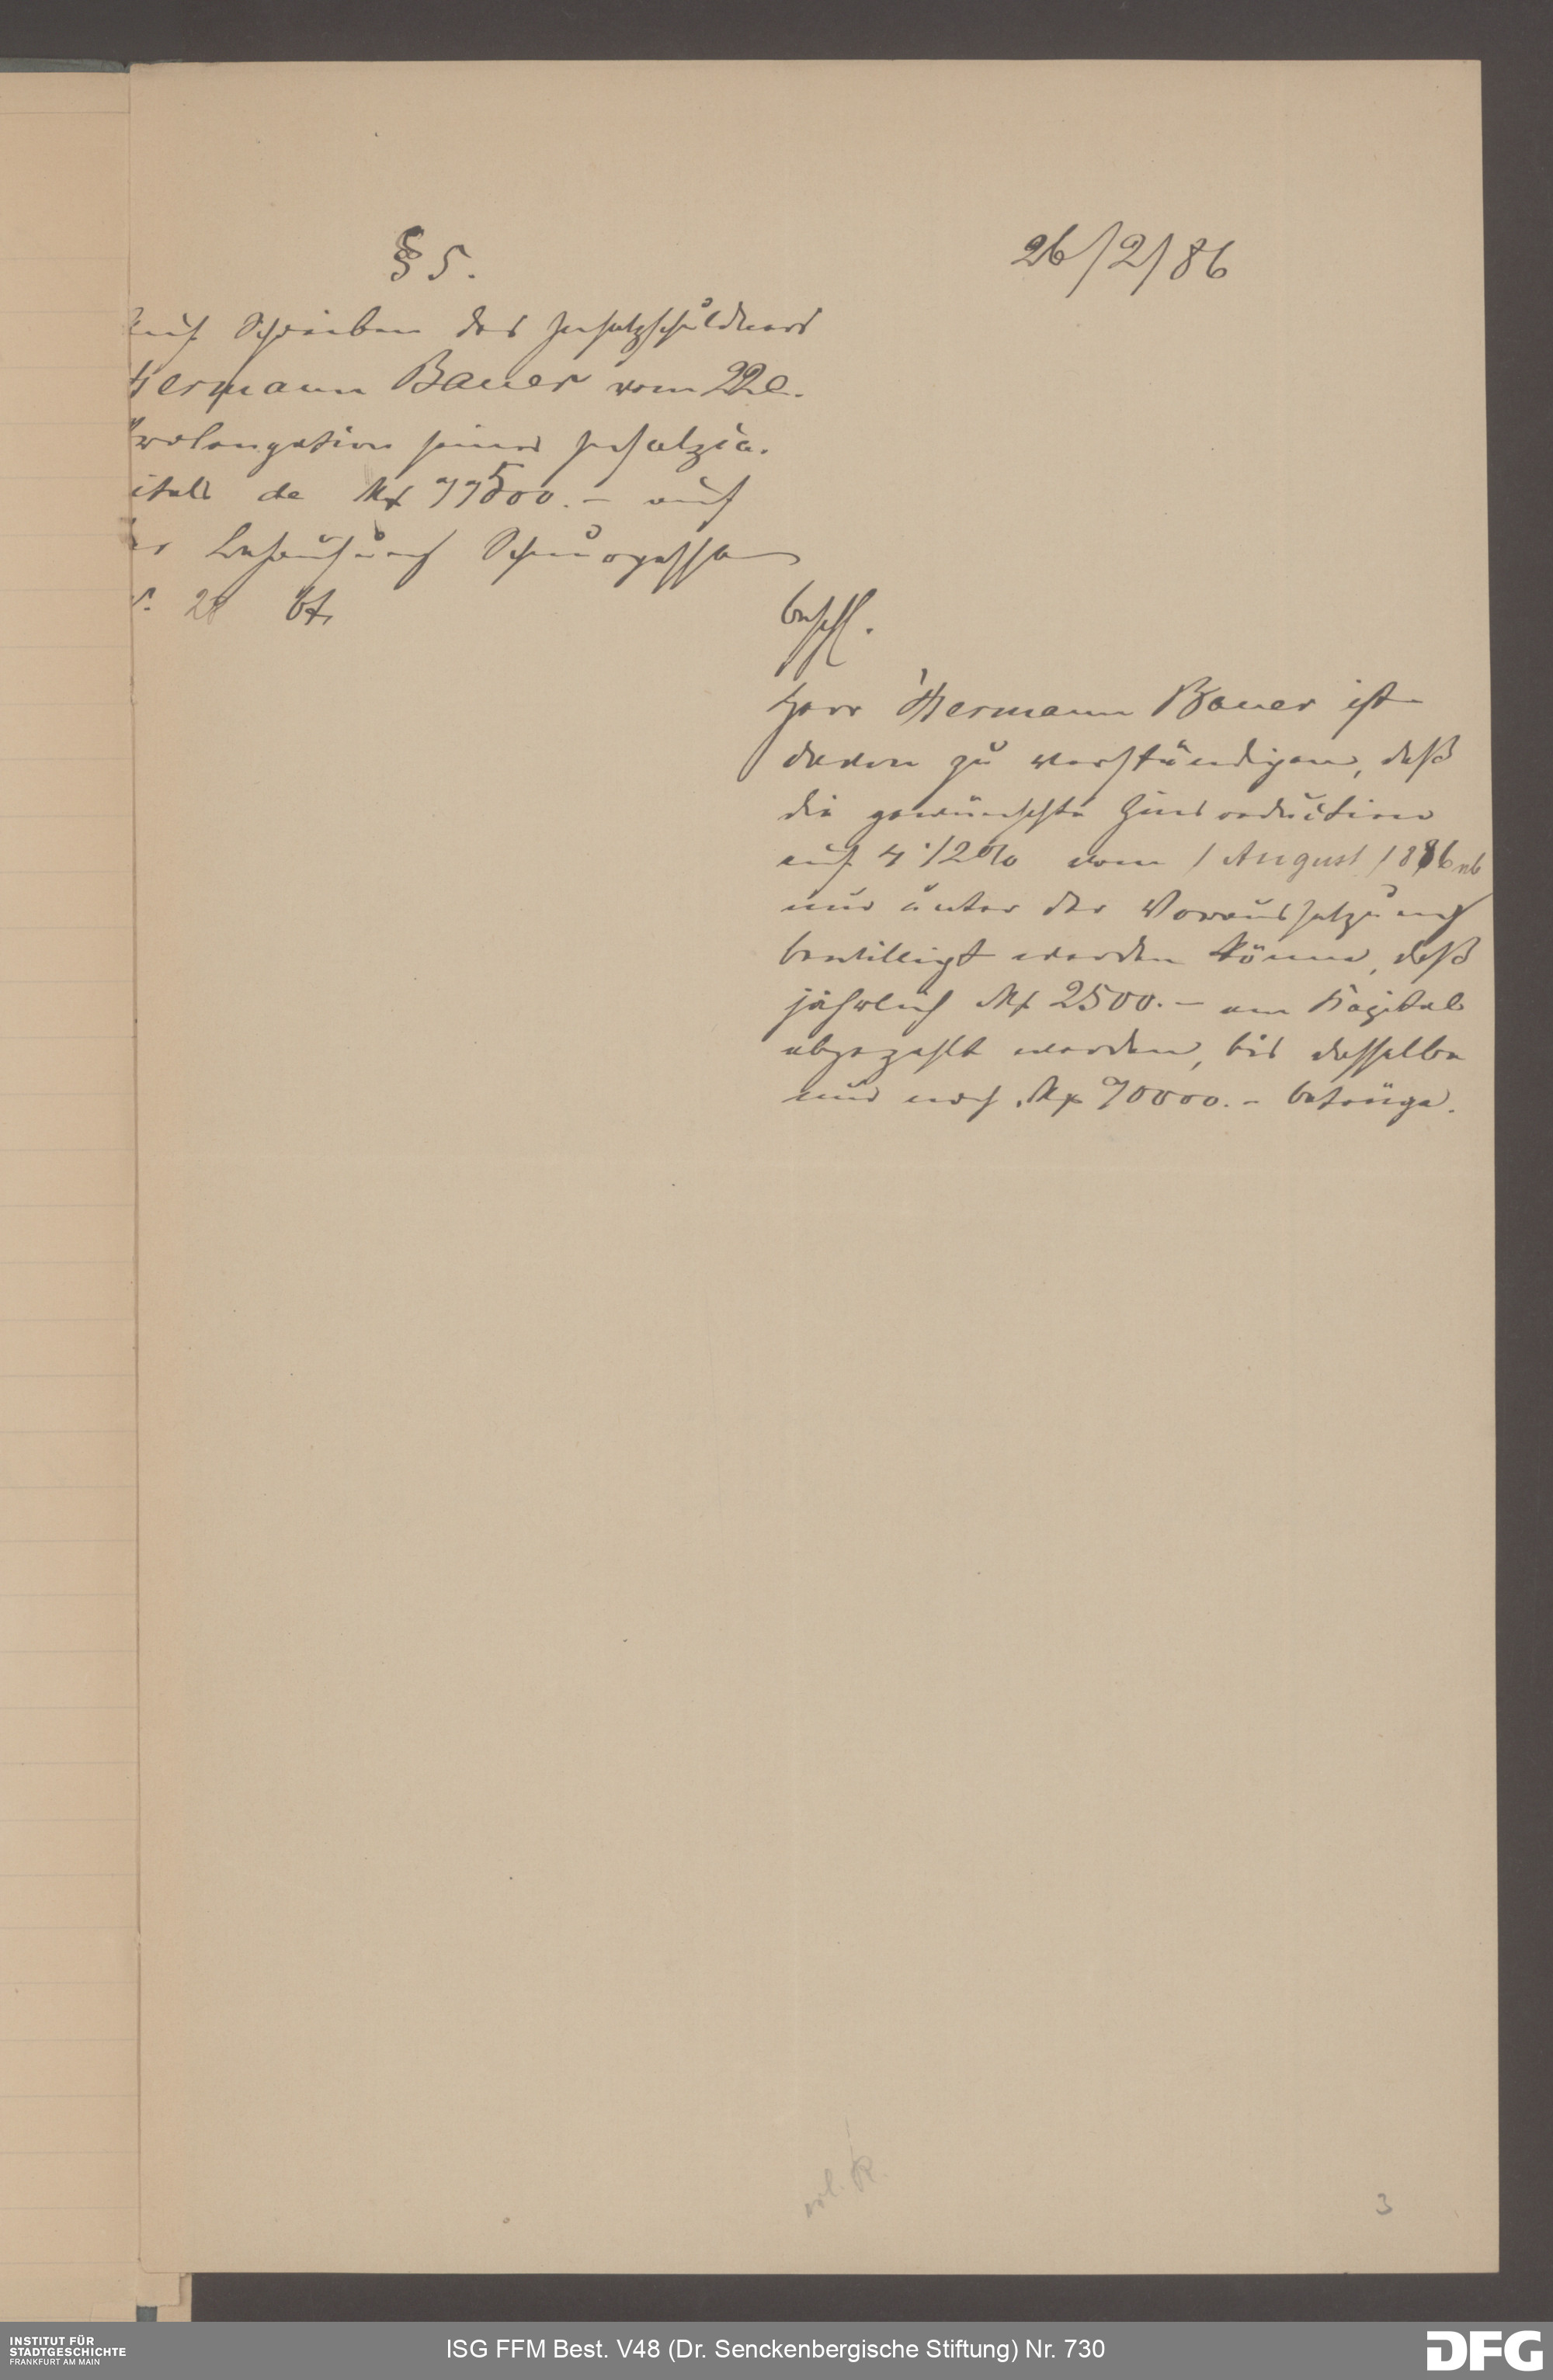 § 5.
26/2/86
auf Schreiben des Insatzschuldners
Hermann Bauer vom 22 c.
Prolongation seines Insatzca-
itals de Mk 77500.– auf
er Behausung Schnurgasse
btr
beschl.
Herr Hermann Bauer ist
davon zu verständigen, daß
die gewünschte Zinsreduction
auf 4 1/2 % vom 1 August 1886 ab
nur unter der Voraussetzung
bewilligt werden könne, daß
jährlich Mk 2500.– am Kapital
abgezahlt werden, bis dasselbe
nur noch Mk 70000.– betrüge.
3
INSTITUT FÜR
STADTGESCHICHTE
FRANKFURT AM MAIN
ISG FFM Best. V48 (Dr. Senckenbergische Stiftung) Nr. 730
DFG